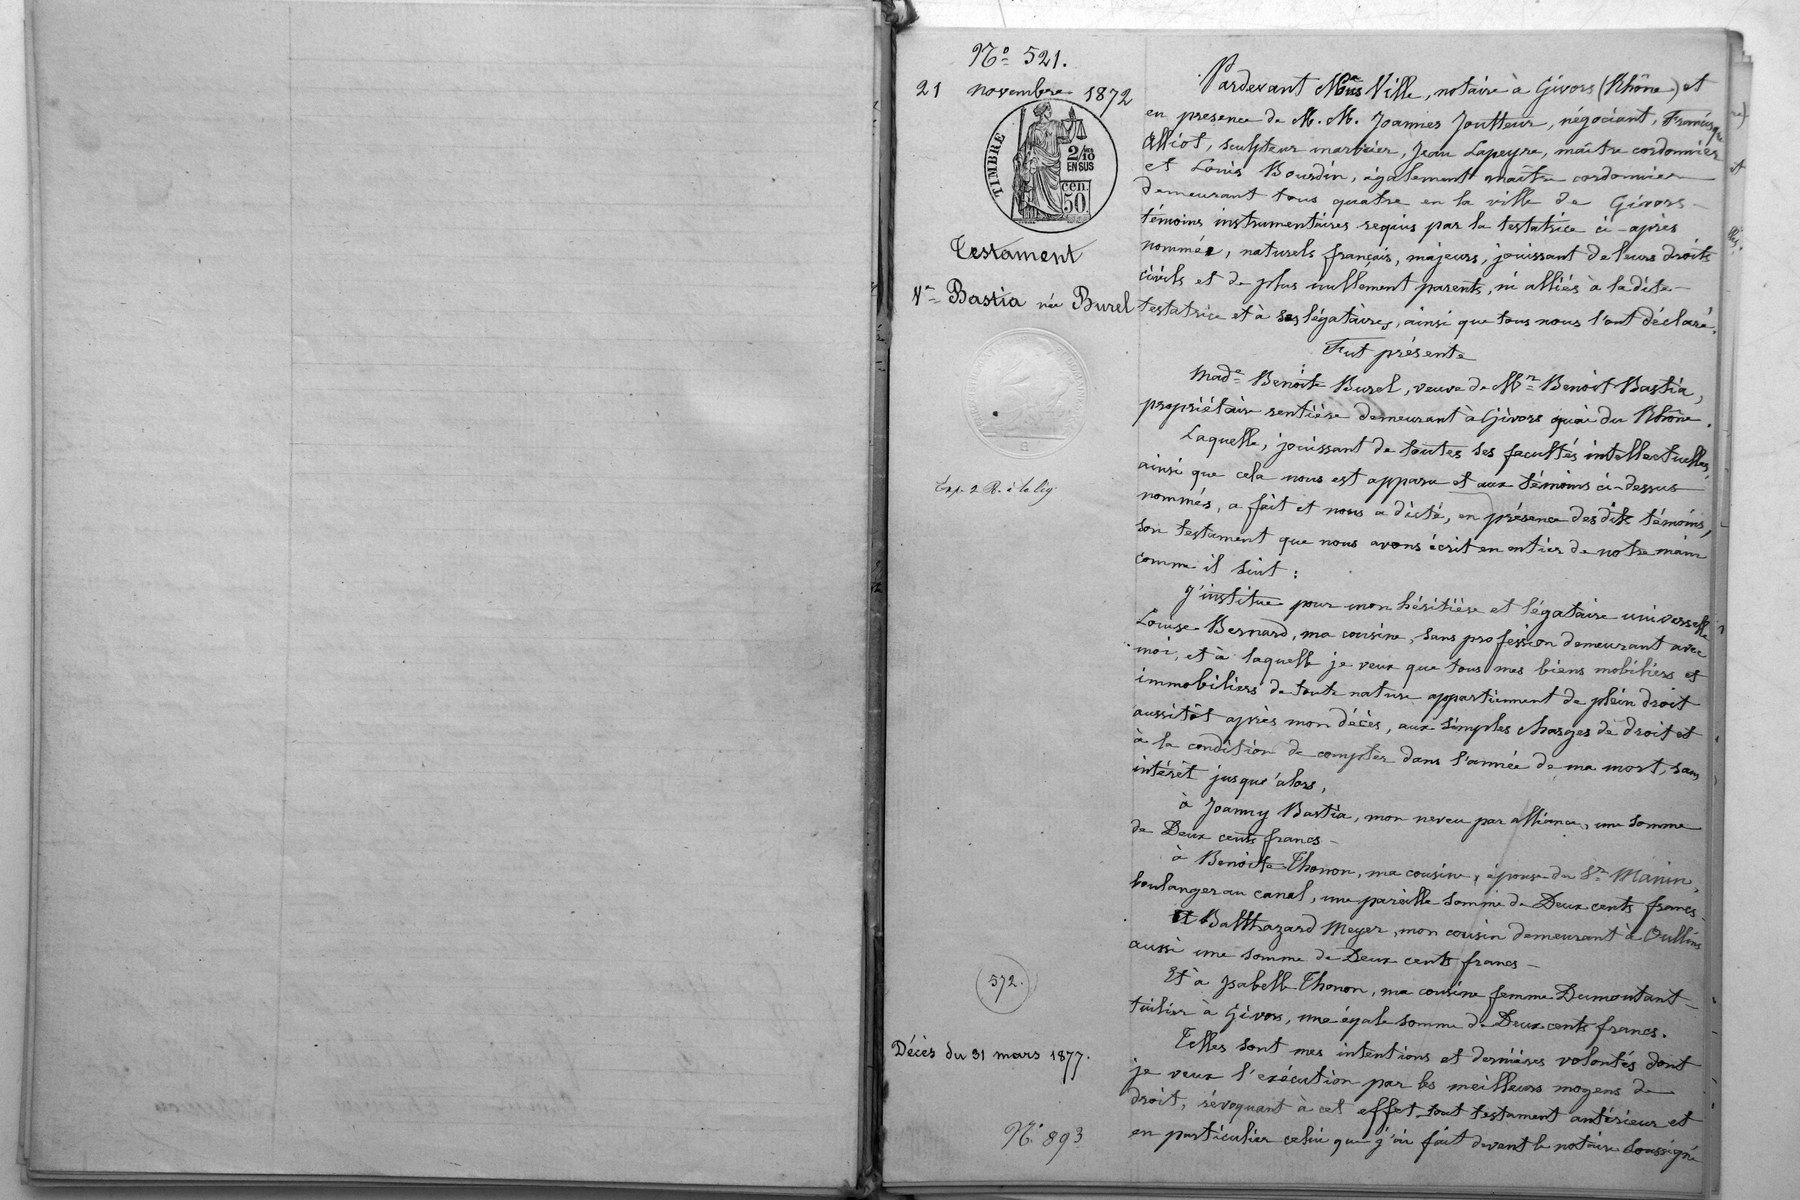 N° 521.
21 novembre 1872
TIMBRE
2/10
EN SUS
cen.
50.
Testament
Ve Bastia née Burel
Exp.
572.
Décès du 31 mars 1877.
N° 893
Pardevant Me Ville, notaire à Givors (Rhône) et
en presence de M. M. Joannes Joutteur, négociant, Francisque
Alliot, sculpteur marbrier, Jean Lapeyre, maître cordonnier
et Louis Bourdin, également maître cordonnier
demeurant tous quatre en la ville de Givors -
témoins instrumentaires requis par la testatrice ci-après
nommée, naturels français, majeurs, jouissant de leurs droits
civils et de plus nullement parents, ni alliés à la dite -
testatrice et à ses légataires, ainsi que tous nous l'ont déclaré.
Fut présente
Made Benoite Burel, veuve de Mr Benoit Bastia,
propriétaire rentière demeurant à Givors quai du Rhône.
Laquelle, jouissant de toutes ses facultés intellectuelles,
ainsi que cela nous est apparu et aux témoins ci-dessus
nommés, a fait et nous a dicté, en présence des dits témoins,
son testament que nous avons écrit en entier de notre main
comme il suit :
J'institue pour mon héritière et légataire universelle
Louise Bernard, ma cousine, sans profession demeurant avec
moi, et à laquelle je veux que tous mes biens mobiliers et
immobiliers de toute nature appartiennent de plein droit
aussitôt après mon décès, aux simples charges de droit et
à la condition de compter dans l'année de ma mort, sans
intérêt jusqu'alors,
à Joanny Bastia, mon neveu par alliance, une somme
de Deux cents francs -
à Benoite Thonon, ma cousine, épouse du Sr Manin,
boulanger au canal, une pareille somme de Deux cents francs -
à Balthazard Meyer, mon cousin demeurant à Oullins
aussi une somme de Deux cents francs -
Et à Isabelle Thonon, ma cousine femme Dumoutant -
tuilier à Givors, une égale somme de Deux cents francs.
Telles sont mes intentions et dernières volontés dont
je veux l'exécution par les meilleurs moyens de
droit, révoquant à cet effet tout testament antérieur et
en particulier celui que j'ai fait devant le notaire soussigné